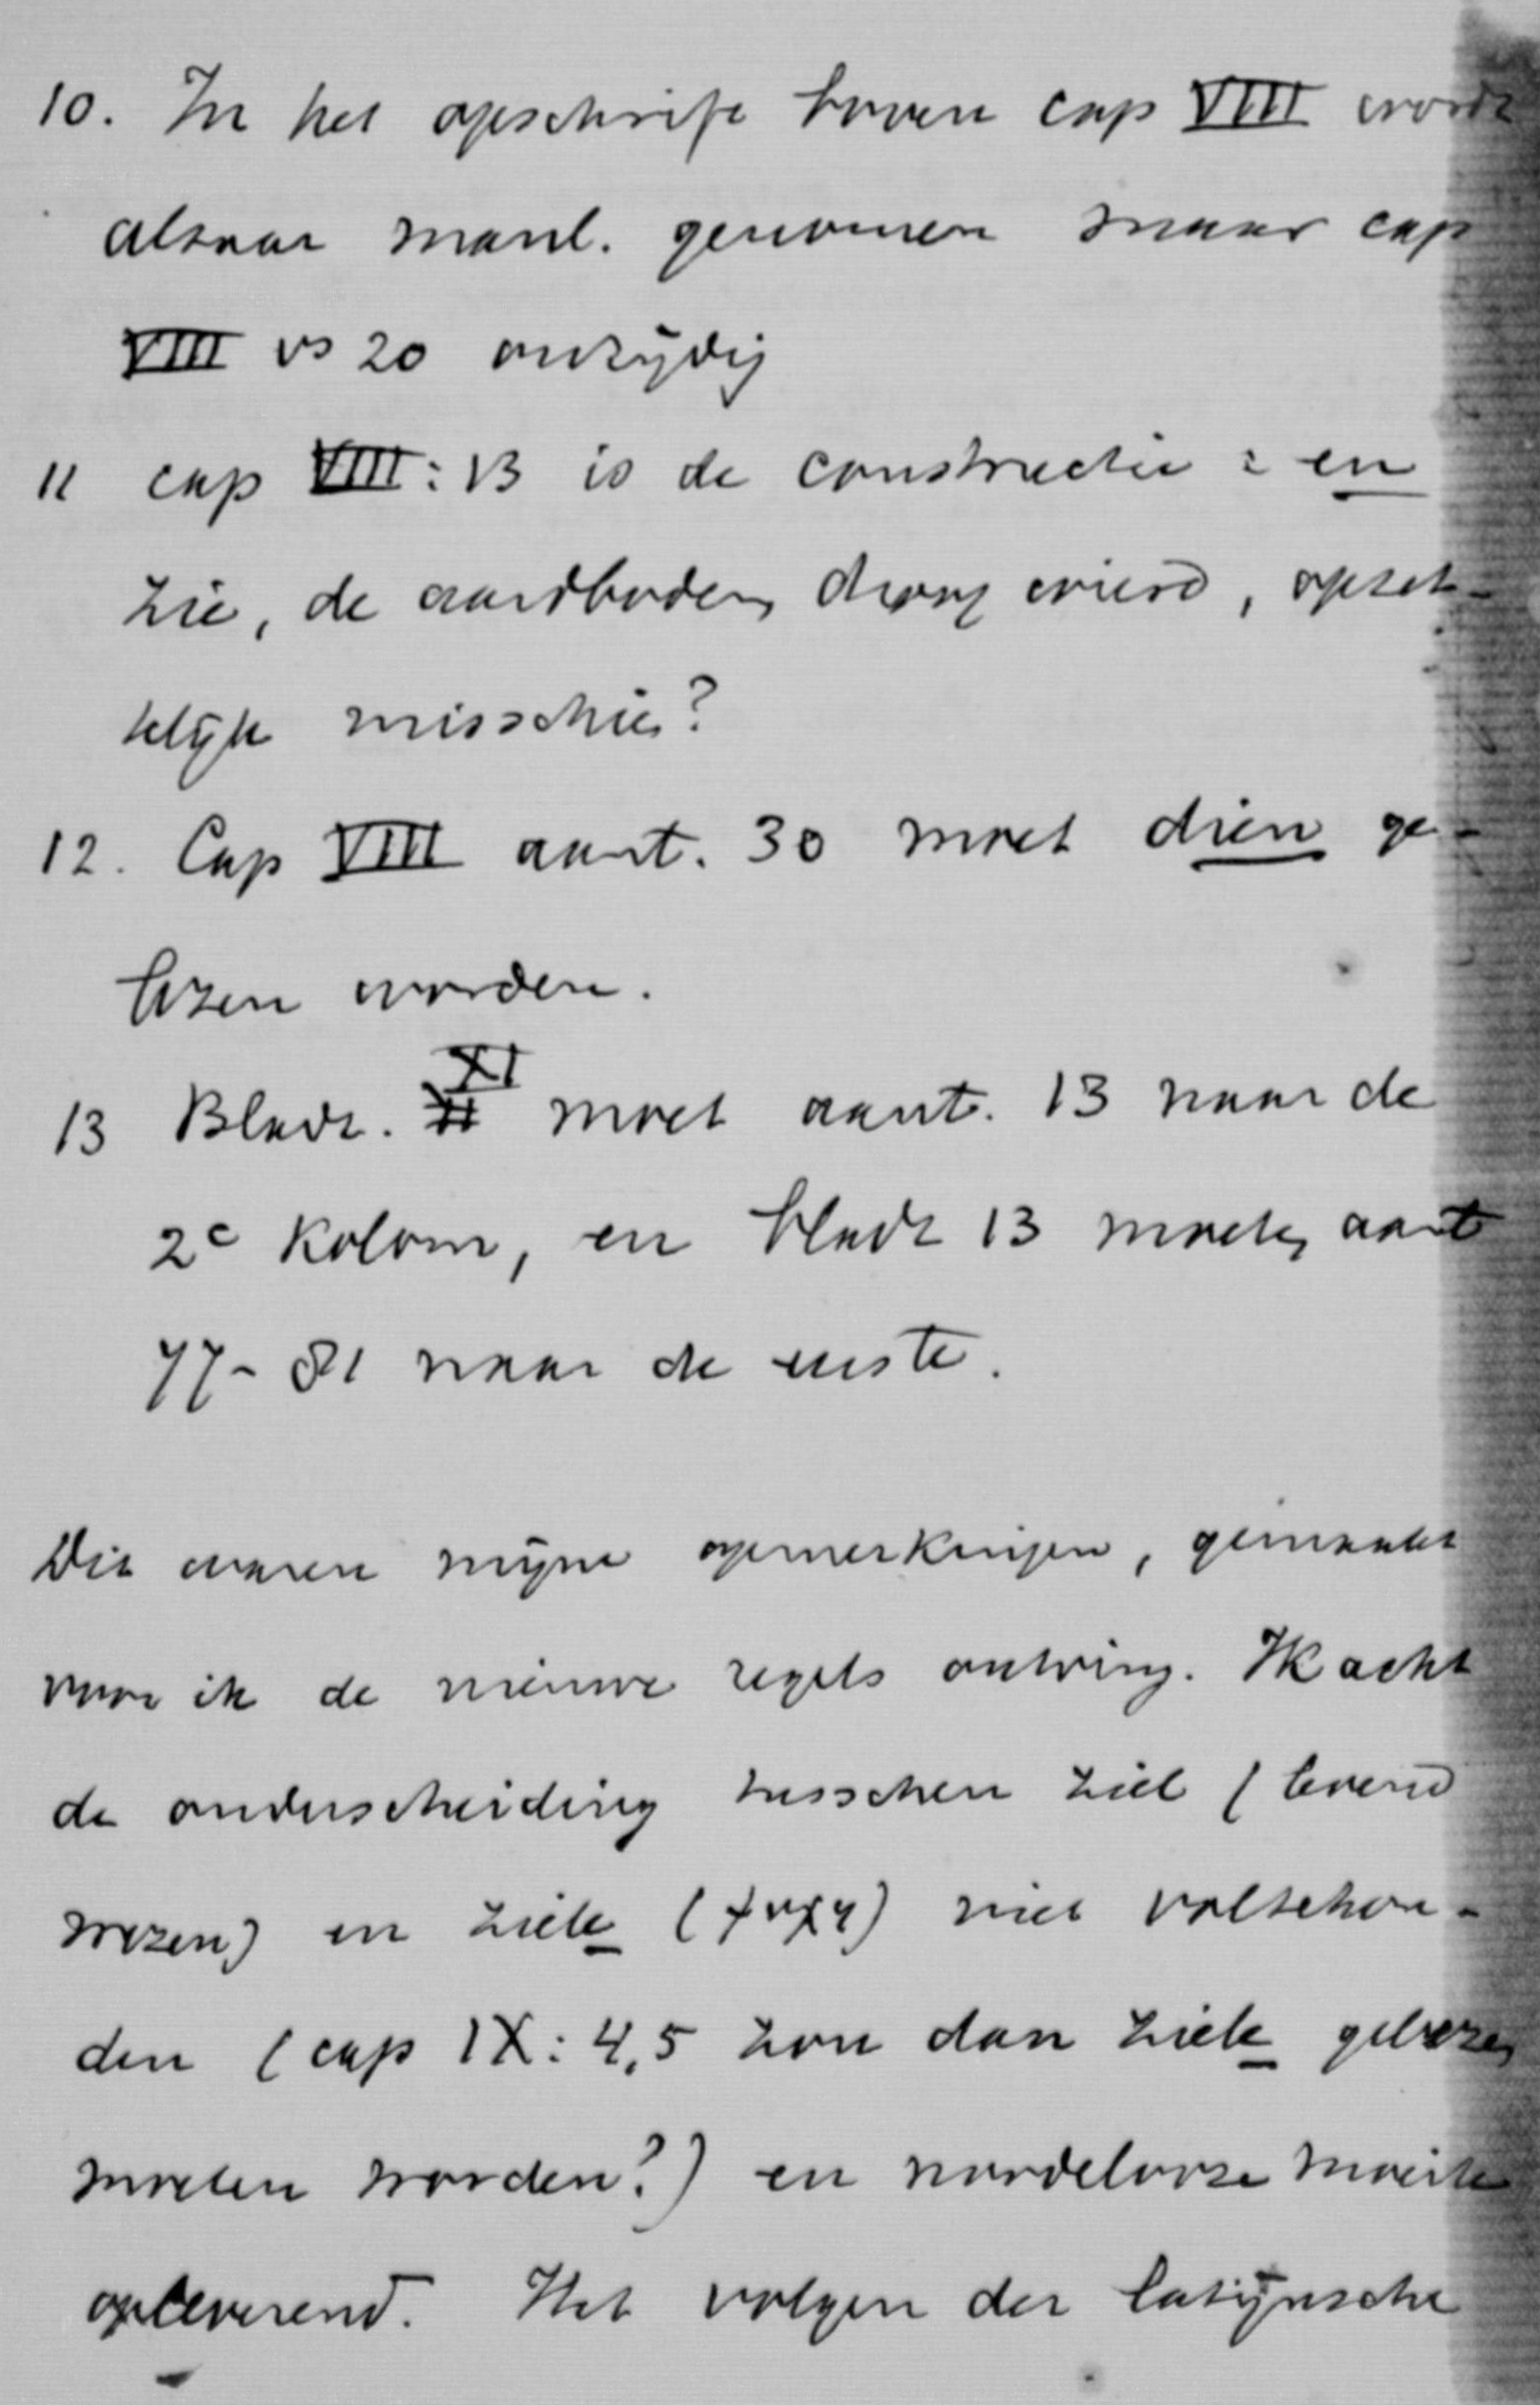 10. In het opschrift boven cap VIII wordt
altaar manl. genomen maar cap
VIII vs 20 onzijdig
11 cap VIII: 13 is de constructie : en
zie, de aardbodem droog wierd, opzet-
telijk misschien?
12. Cap VIII aant. 30 moet dien ge-
lezen worden.
13 Bladz. XI moet aant. 13 naar de
2e kolom, en bladz 13 moeten aant
77-81 naar de eerste.
Dit waren mijne opmerkingen, gemaakt
voor ik de nieuwe regels ontving. Ik acht
de onderscheiding tusschen ziel (levend
wezen) en ziele (ψυχη) niet volgehou-
den (cap IX: 4,5 zou dan ziele gelezen
moeten worden?) en noodelooze moeite
opleverend. Het volgen der latijnsche